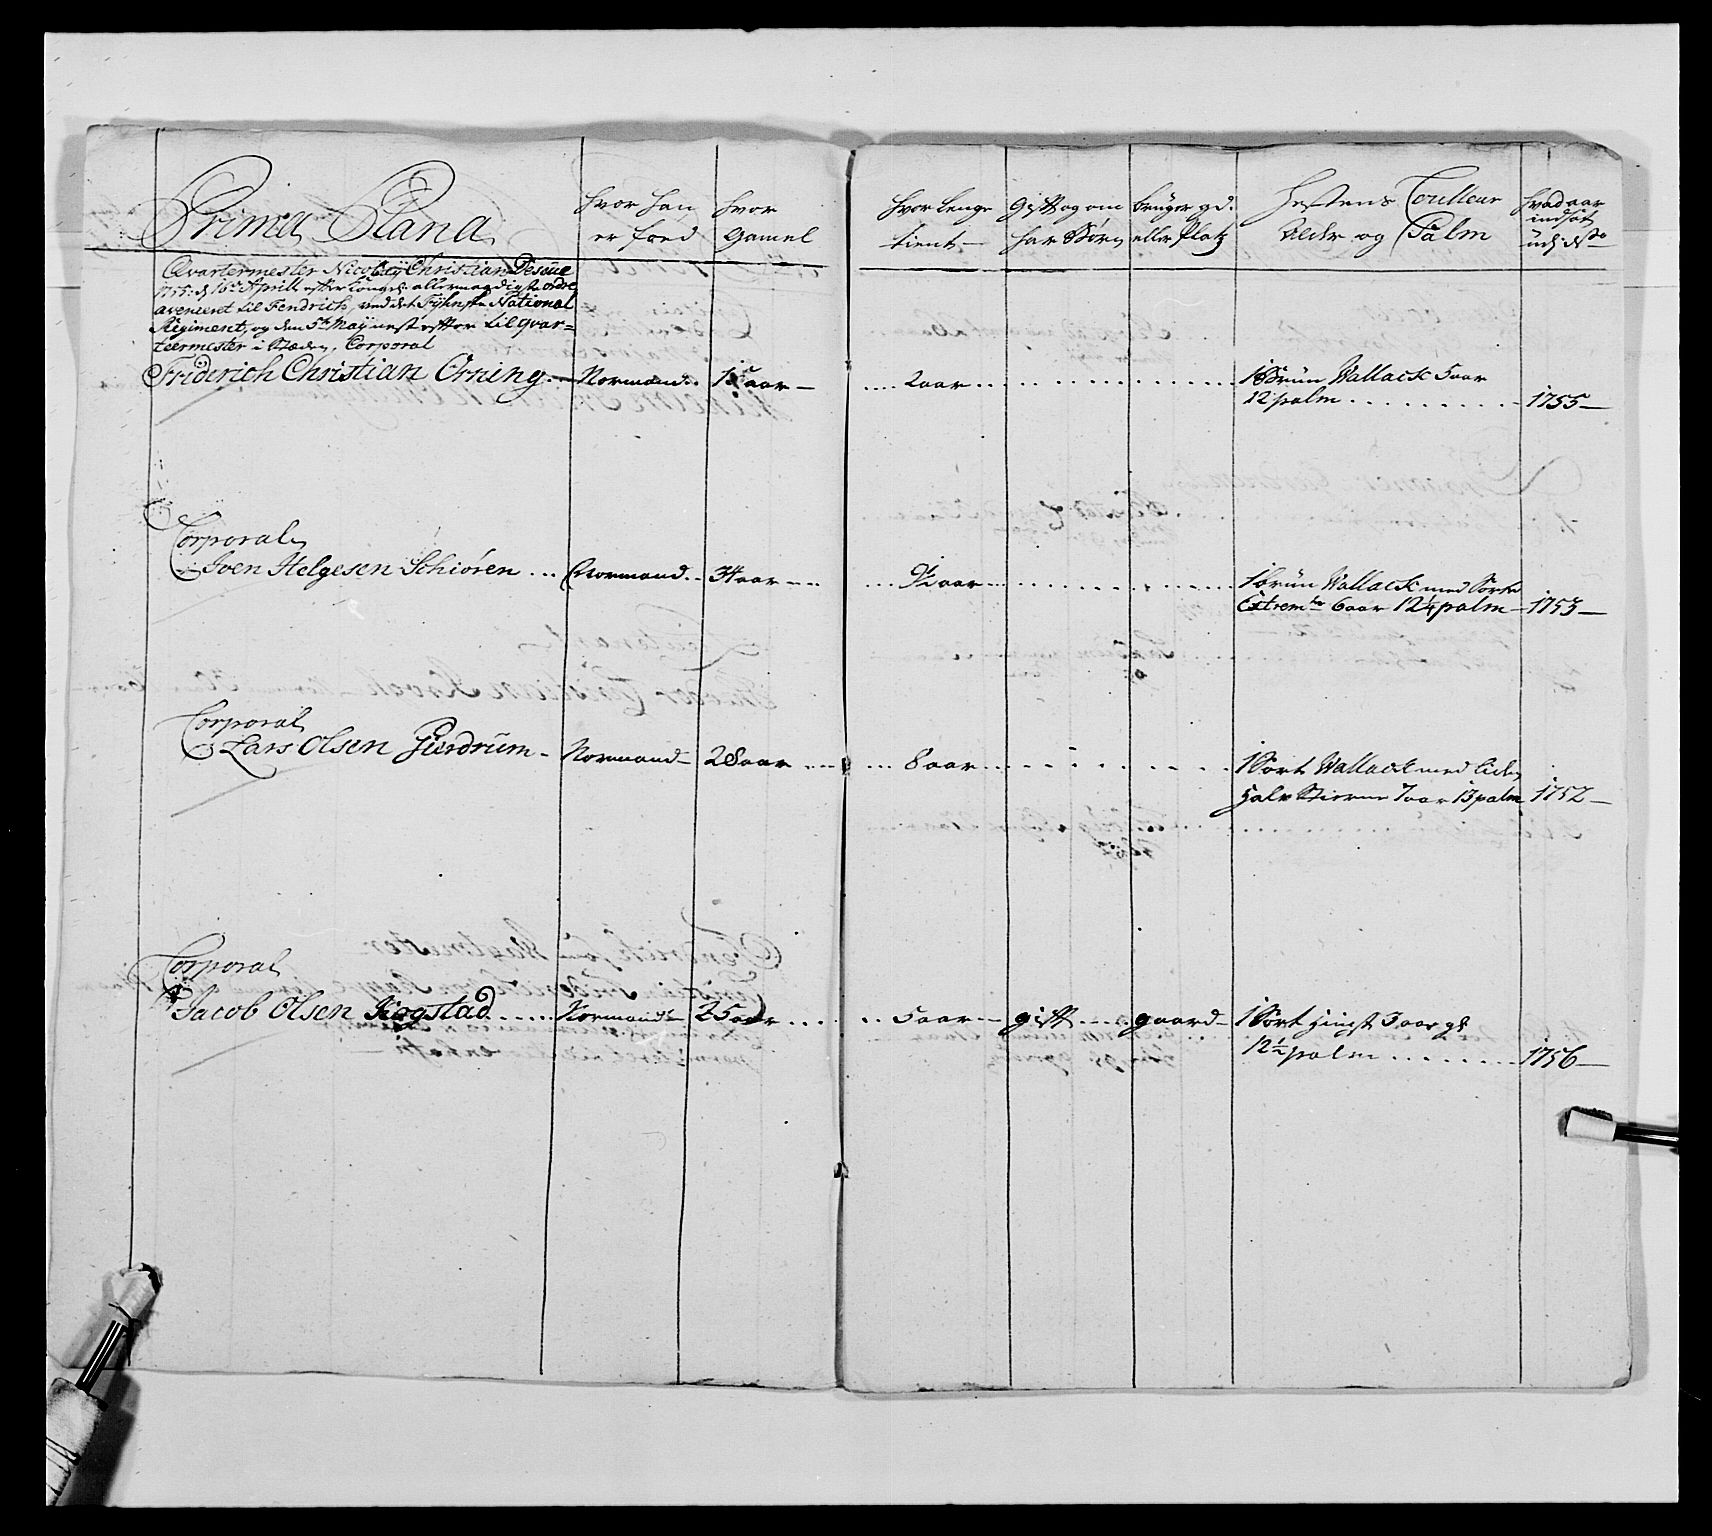 Prima Plana
hvor han
er foed
hvor
Gamel
hvor lenge
tient
Gift og om
har Børn
bruger gd:
eller Platz
Hestens Coulleur
Alder og Palm
hvad aar
indsat
Qvartermester Nicolaÿ Christian Desaue
1755: d 16de Aprill efter Kongel: allernaadigste ordre
avenceret til Fendrich, ved det Fÿhnske National
Regiment, og den 5te Maÿ nest efter til Qvar=
teermester i Steden, Corporal
Friderich Christian Örning. Normand. aar 2 aar 1 Brün Wallack 5 aar
12 palm 1755
Corporal
Iven Helgesen Schiören Normand 34 aar 9½ aar 1 brün Wallack med Sorte
Extrem:ter 6 aar 12¼ palm 1753
Corporal
Lars Olsen Gierdrüm Normand 28 aar 8 aar 1 Sort Wallack med liden
Halv Stierne 7 aar 13 palm 1752
Corporal
Jacob Olsen Kiogstad Normand 25 aar 5 aar gift gaard 1 Sort Hingst 3 aar gl
12½ palm 1756